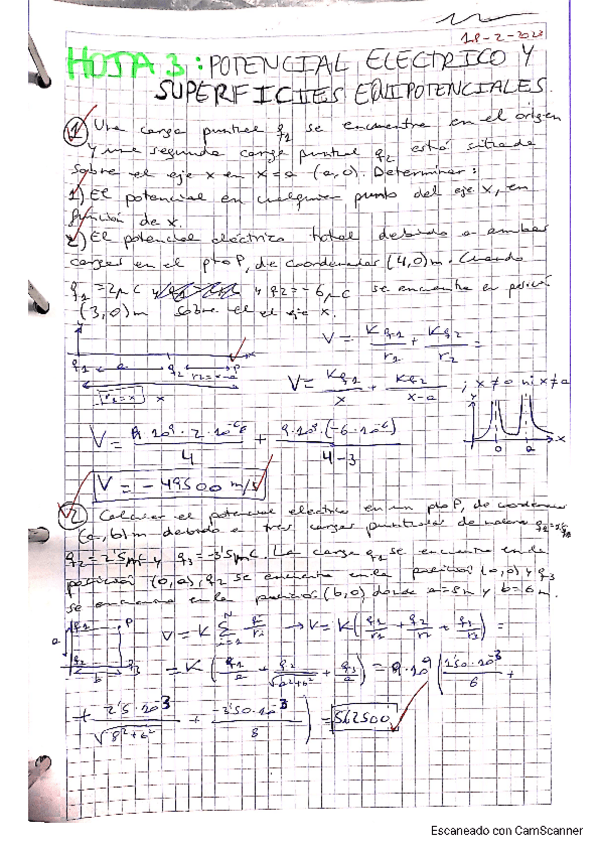 18-2-2023
HOJA 3: POTENCIAL ELECTRICO Y
SUPERFICIES EQUIPOTENCIALES.
① Una carga puntual q1 se encuentra en el origen
y una segunda carga puntual q2 está situada
sobre el eje x en x=a (a,0). Determinar:
1) El potencial en cualquier punto del eje x, en
función de x.
2) El potencial eléctrico total debido a ambas
cargas en el pto P, de coordenadas (4,0)m. Cuando
q1=2μC y q2=-6μC se encuentra en posición
(3,0)m sobre el eje x.
V = Kq1/r1 + Kq2/r2 =
y
q1 a q2 r2=x-a P x
r1=x x
V= Kq1/x + Kq2/x-a ; x≠0 ni x≠a
y 0 a x
V= 9·10⁹·2·10⁻⁶/4 + 9·10⁹·(-6·10⁻⁶)/4-3
V= -49500 m/s
② Calcular el potencial eléctrico en un pto P, de coordenadas
(a,b)m debido a tres cargas puntuales de valores
q2=2'5mC y q3=-3'5mC. La carga q1 se encuentra en la
posición (0,a), q2 se encuentra en la posición (0,0) y q3
se encuentra en la posición (b,0) donde a=8m y b=6m.
q1 P
a
q2 b q3
V=K Σ q/ri → V=K(q1/r1 + q2/r2 + q3/r3) =
= K (q1/a + q2/√a²+b² + q3/a) = 9·10⁹ (1'50·10⁻³/6 +
+ 2'5·10⁻³/√8²+6² + -3'50·10⁻³/8) = 562500
Escaneado con CamScanner